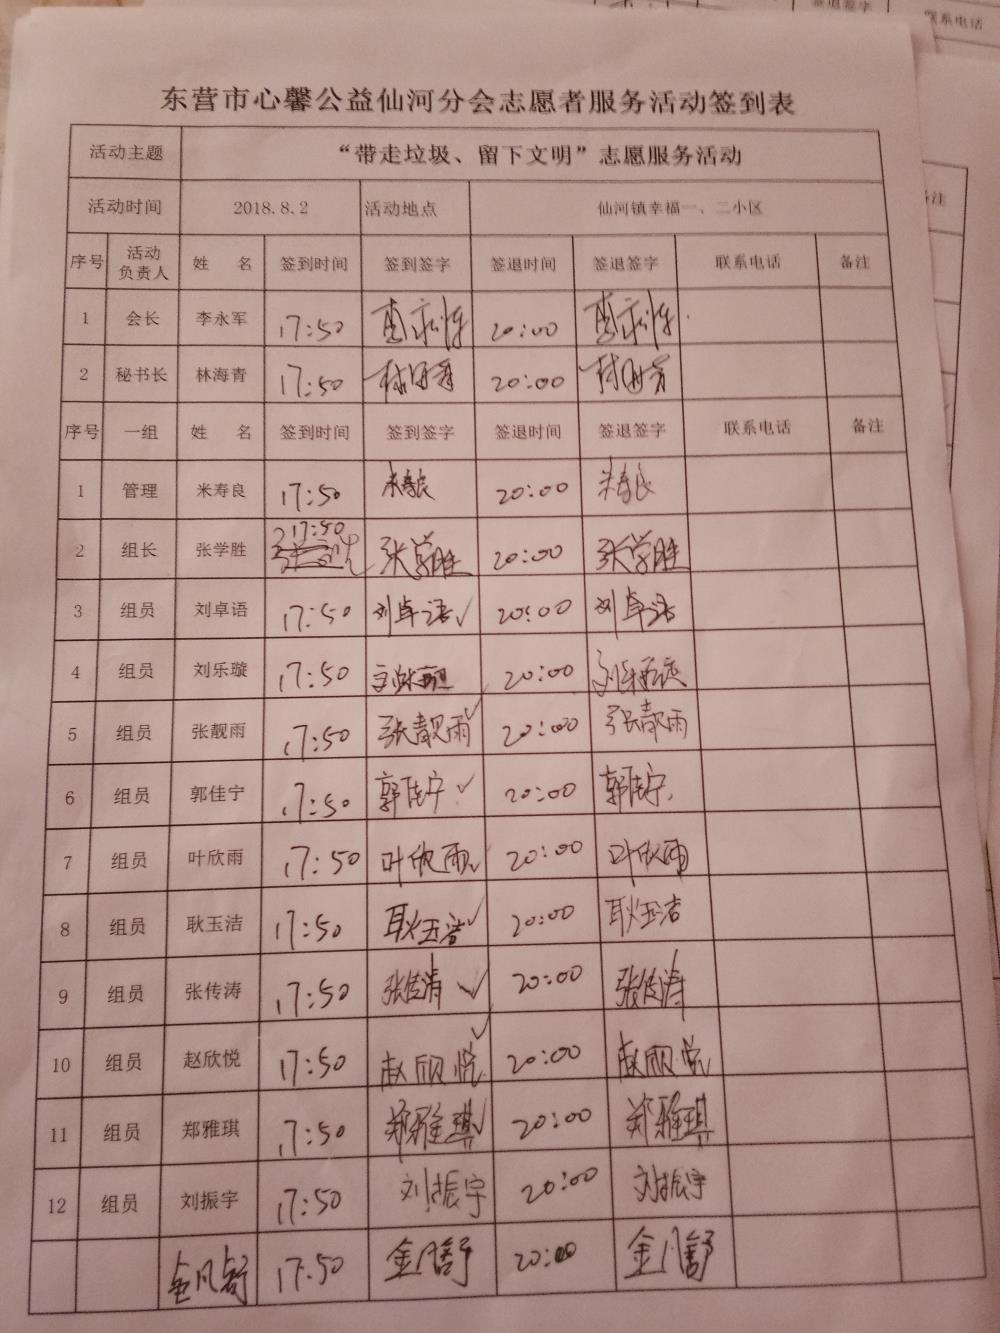 东营市心馨公益仙河分会志愿者服务活动签到表
活动主题 “带走垃圾、留下文明”志愿服务活动
活动时间 2018.8.2 活动地点 仙河镇幸福一、二小区
序号 活动负责人 姓 名 签到时间 签到签字 签退时间 签退签字 联系电话 备注
1 会长 李永军 17:50 20:00
2 秘书长 林海青 17:50 林海青 20:00 林海青
序号 一组 姓 名 签到时间 签到签字 签退时间 签退签字 联系电话 备注
1 管理 米寿良 17:50 米寿良 20:00 米寿良
2 组长 张学胜 17:50 张学胜 20:00 张学胜
3 组员 刘卓语 17:50 刘卓语 ✓ 20:00 刘卓语
4 组员 刘乐璇 17:50 刘乐璇 20:00 刘乐璇
5 组员 张靓雨 17:50 张靓雨 ✓ 20:00 张靓雨
6 组员 郭佳宁 17:50 郭佳宁 ✓ 20:00 郭佳宁
7 组员 叶欣雨 17:50 叶欣雨 ✓ 20:00 叶欣雨
8 组员 耿玉洁 17:50 耿玉洁 ✓ 20:00 耿玉洁
9 组员 张传涛 17:50 张传涛 ✓ 20:00 张传涛
10 组员 赵欣悦 17:50 赵欣悦 ✓ 20:00 赵欣悦
11 组员 郑雅琪 17:50 郑雅琪 ✓ 20:00 郑雅琪
12 组员 刘振宇 17:50 刘振宇 20:00 刘振宇
金凡舒 17:50 金凡舒 20:00 金凡舒
签退签字 联系电话
备注